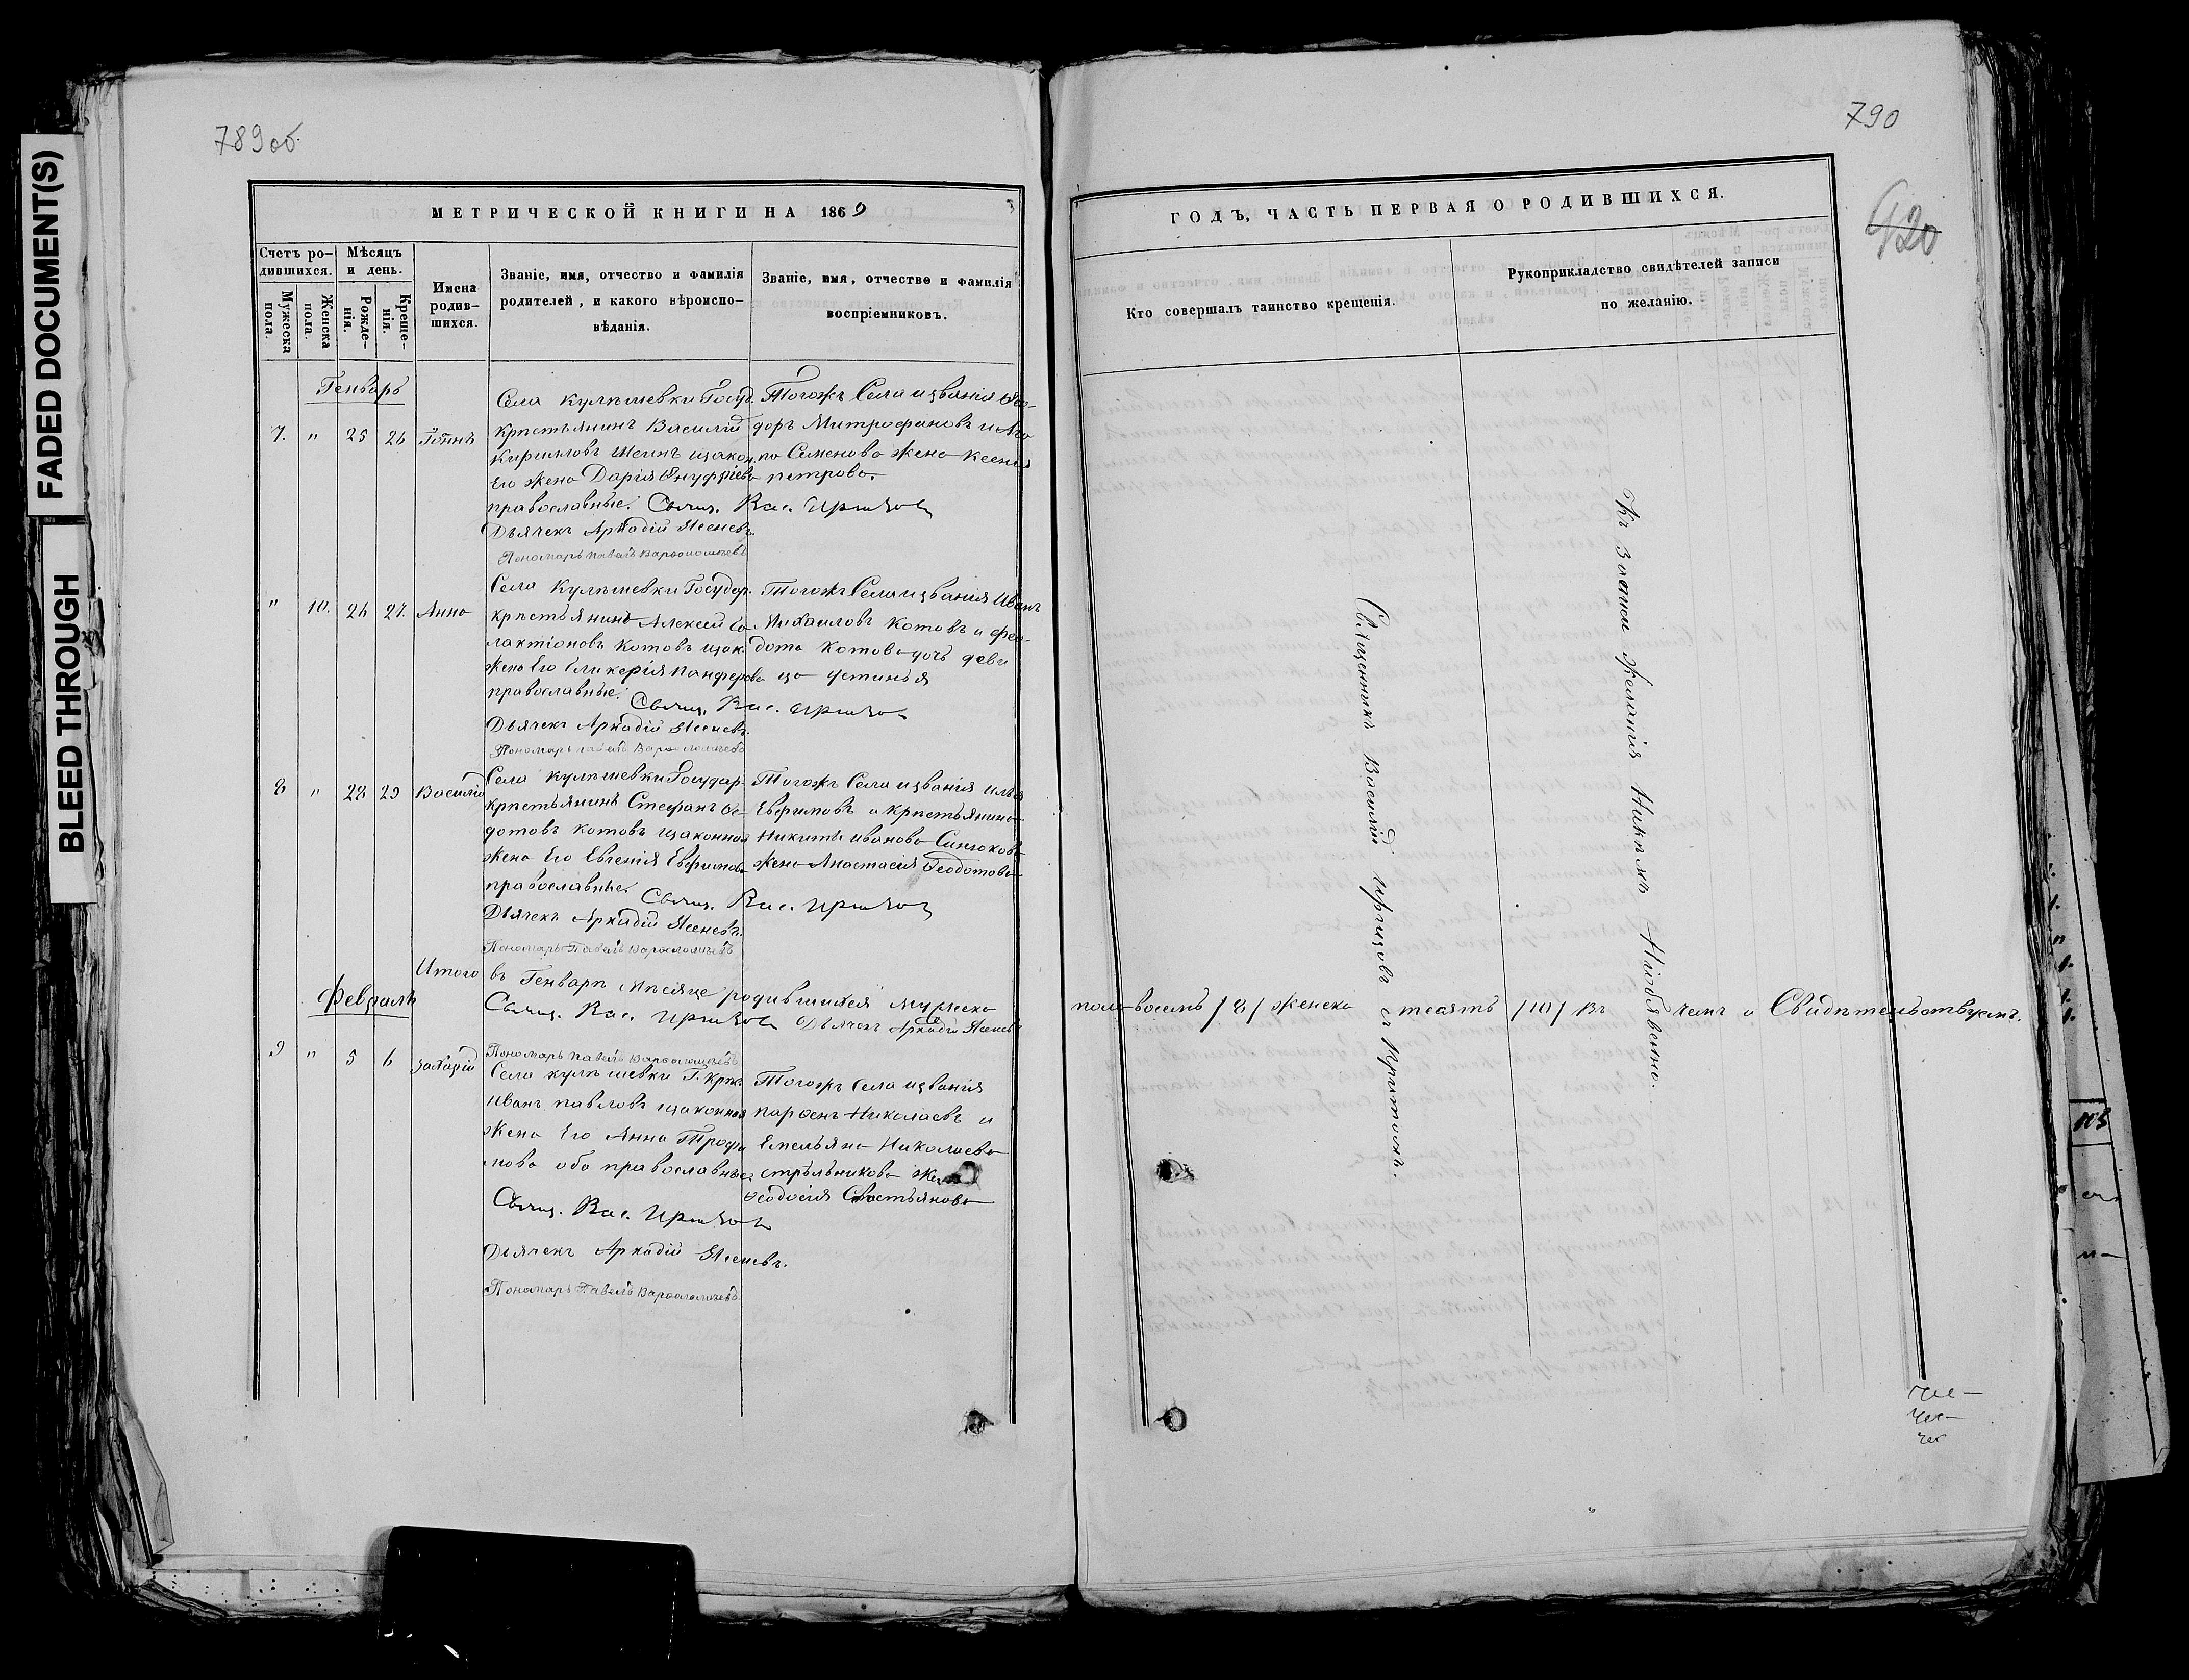 FADED DOCUMENT(S)
BLEED THROUGH
789 об.
МЕТРИЧЕСКОЙ КНИГИ НА 1869
Счетъ ро-
дившихся.
Мужеска
пола.
Женска
пола.
Мѣсяцъ
и день.
Рожде-
нія.
Креще-
нія.
Имена
родив-
шихся.
Званіе, имя, отчество и фамилія
родителей, и какого вѣроиспо-
вѣданія.
Званіе, имя, отчество и фамилія
воспріемниковъ.
Генварь
7. " 25 26
Села Кулѣшевки Госуд.
крестьянинъ Василій
Кирилловъ
Его жена Дарія Онуфріева
православные. Свящ. Вас.
Дьячекъ Аркадій Ясеневъ
Пономарь Павелъ Варѳоломѣевъ
Тогожъ Села изванія Ѳео-
доръ Митрофановъ и
Семенова жена Ксенія
петрова.
" 10. 26 27. Анна
Села Кулѣшевки Государ.
крестьянинъ Алексей Га-
лактіоновъ Котовъ изак.
жена Его Гликерія Панферова
православные. Свящ. Вас.
Дьячекъ Аркадій Ясеневъ.
Пономарь Павелъ Варѳоломѣевъ
Тогожъ Села изванія Иванъ
Михаиловъ Котовъ и Фео-
дота Котова дочь деви
ца Устинья
8 " 28 29 Василій
Села Кулѣшевки Государ.
крестьянинъ Стефанъ Ѳе-
дотовъ Котовъ изаконная
жена Его Евгенія Евфимова
православные. Свящ. Вас.
Дьячекъ Аркадій Ясеневъ.
Пономарь Павелъ Варѳоломѣевъ
Тогожъ Села изванія Илья
Евфимовъ и крестьянина
Никиты Иванова
жена Анастасія Ѳеодотова
Итого въ Генварѣ мѣсяце родившихся мужеска
Свящ. Вас. Дьячекъ Аркадій Ясеневъ
Пономарь Павелъ Варѳоломѣевъ
Февраль
9 " 5 6 Захарій
Села Кулѣшевки Г. крес.
Иванъ Павловъ изаконная
жена Его Анна Трофи
мова оба православные
Свящ. Вас.
Дьячекъ Аркадій Ясеневъ.
Пономарь Павелъ Варѳоломѣевъ
Тогожъ Села изванія
Парѳенъ Николаевъ и
Емельяна Николаева
стрѣльникова жена
Ѳеодосія
790
420
ГОДЪ, ЧАСТЬ ПЕРВАЯ О РОДИВШИХСЯ.
Кто совершалъ таинство крещенія.
Рукоприкладство свидѣтелей записи
по желанію.
Священникъ Василій съ Причтомъ.
Къ Записи желанія Никѣмъ Необявлено.
пола восемъ /8/ женска /10/ Въ чемъ и Свидѣтельствуемъ.